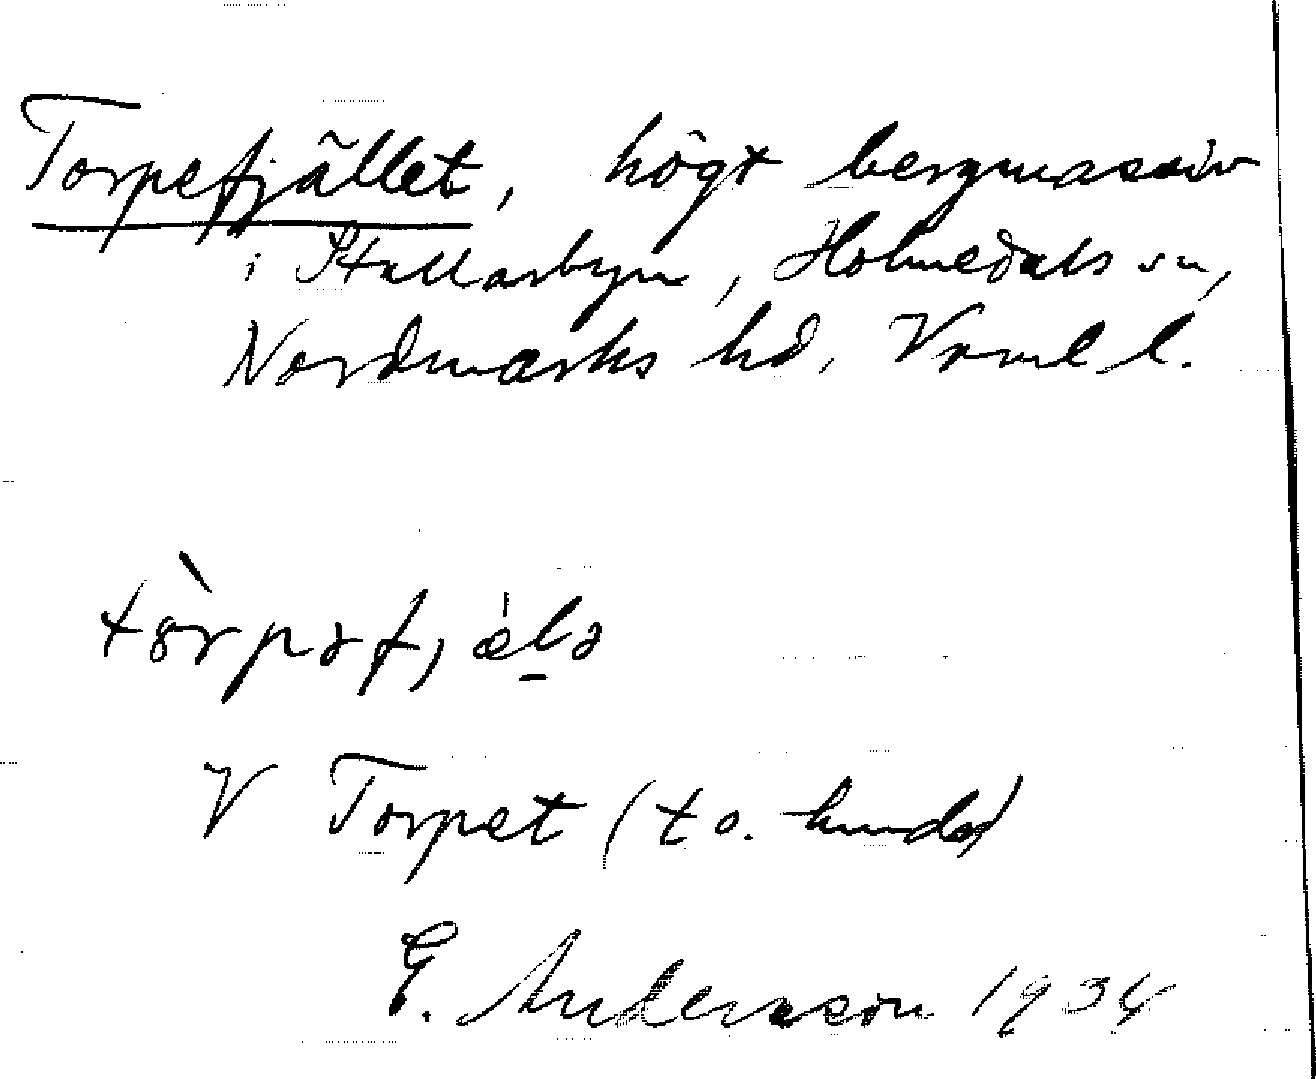 Torpefjället, högt bergmassiv
i Stallarbyn, Holmedals sn,
Nordmarks hd, Värml l.
V Torpet (t o.
E. Andersson 1934